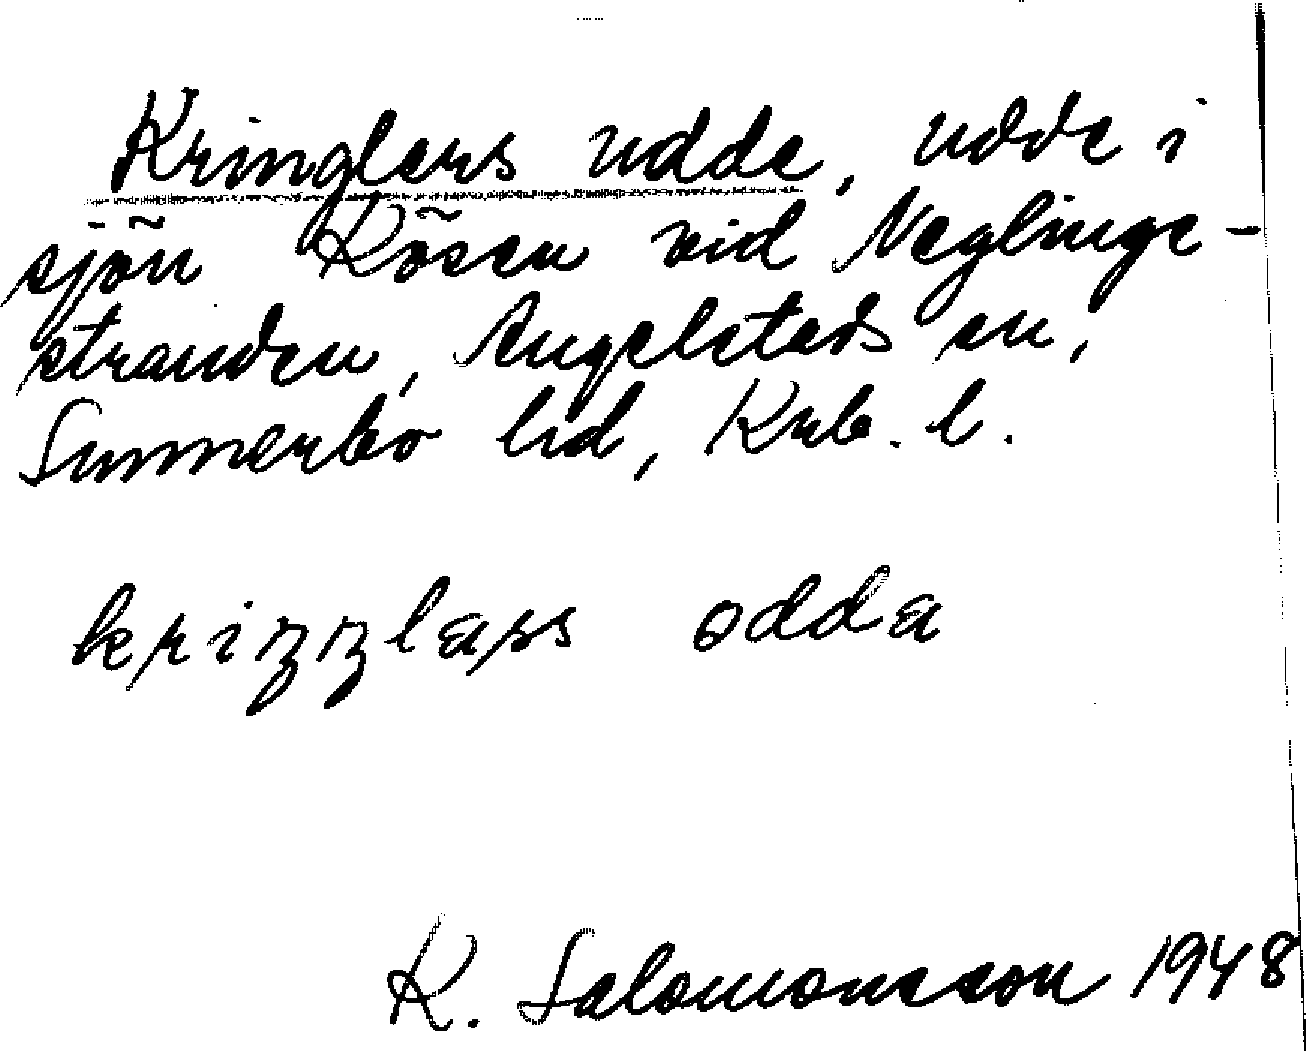 Kringlers udde, udde i
sjön Kösen vid Neglinge-
stranden, Angelstads sn,
Sunnerbo hd, Krb. l.
kriŋŋlass odda
K. Salomonsson 1948